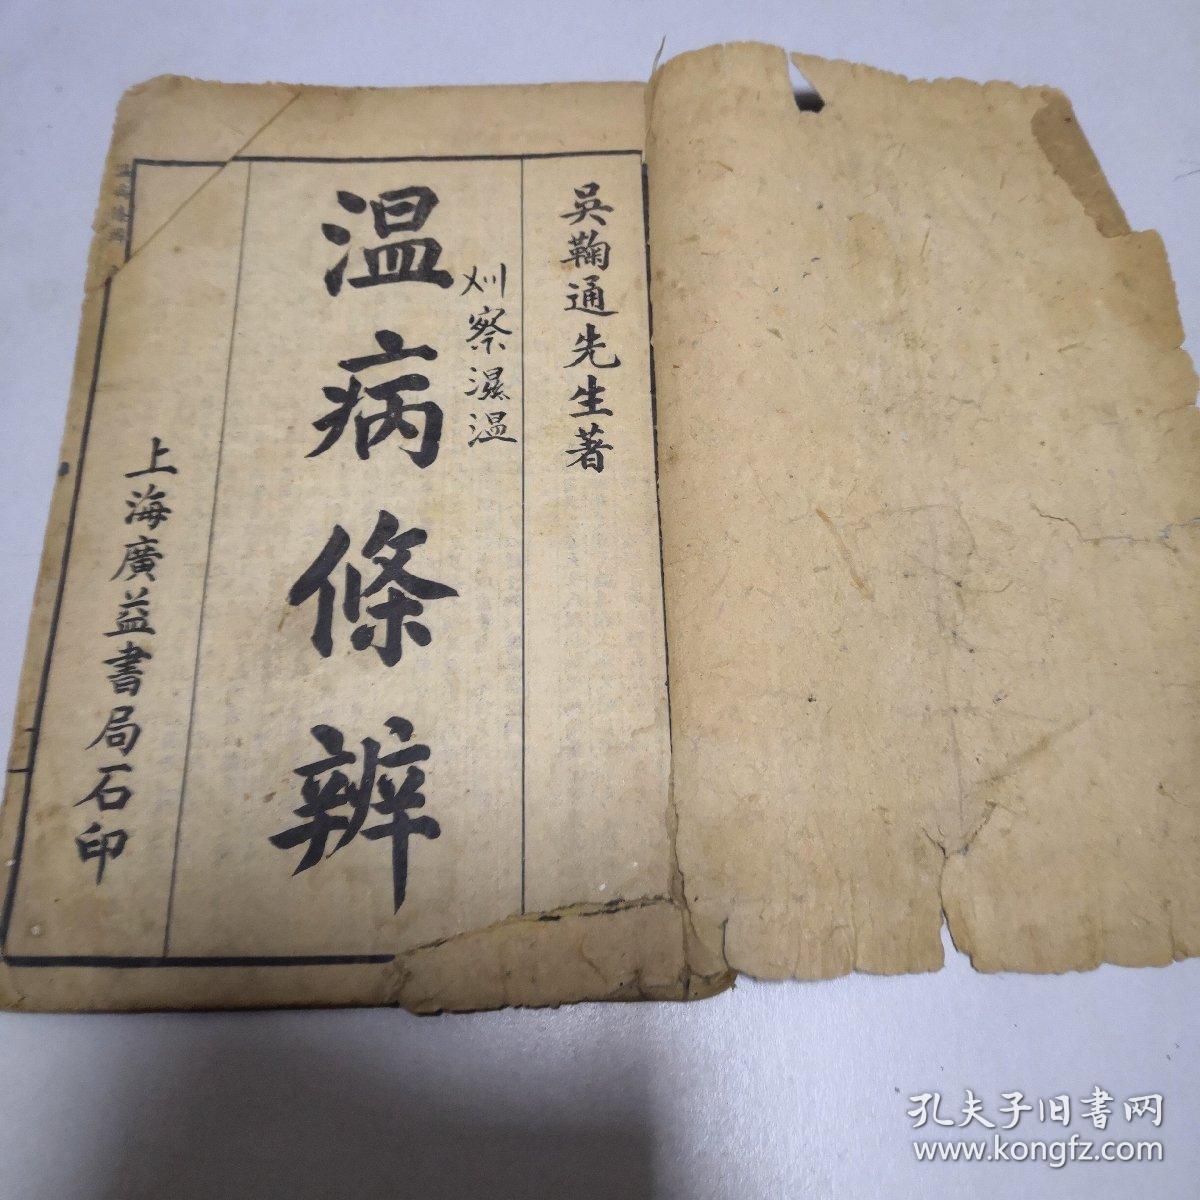 吳鞠通先生著
刈察濕温
温病條辨
上海廣益書局石印
孔夫子旧书网
www.kongfz.com